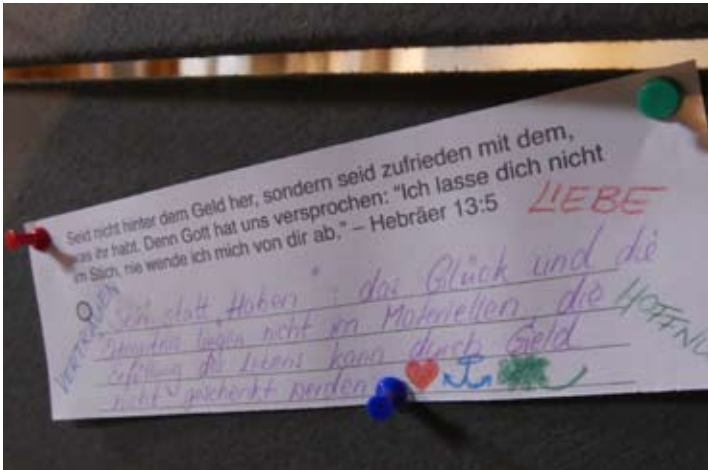 Seid nicht hinter dem Geld her, sondern seid zufrieden mit dem,
was ihr habt. Denn Gott hat uns versprochen: "Ich lasse dich nicht
im Stich, nie wende ich mich von dir ab." – Hebräer 13:5
LIEBE
Sein statt Haben": das Glück und die
liegen nicht im Materiellen, die
Erfüllung des Lebens kann durch Geld
nicht geschenkt werden
VERTRAUEN
HOFFNU